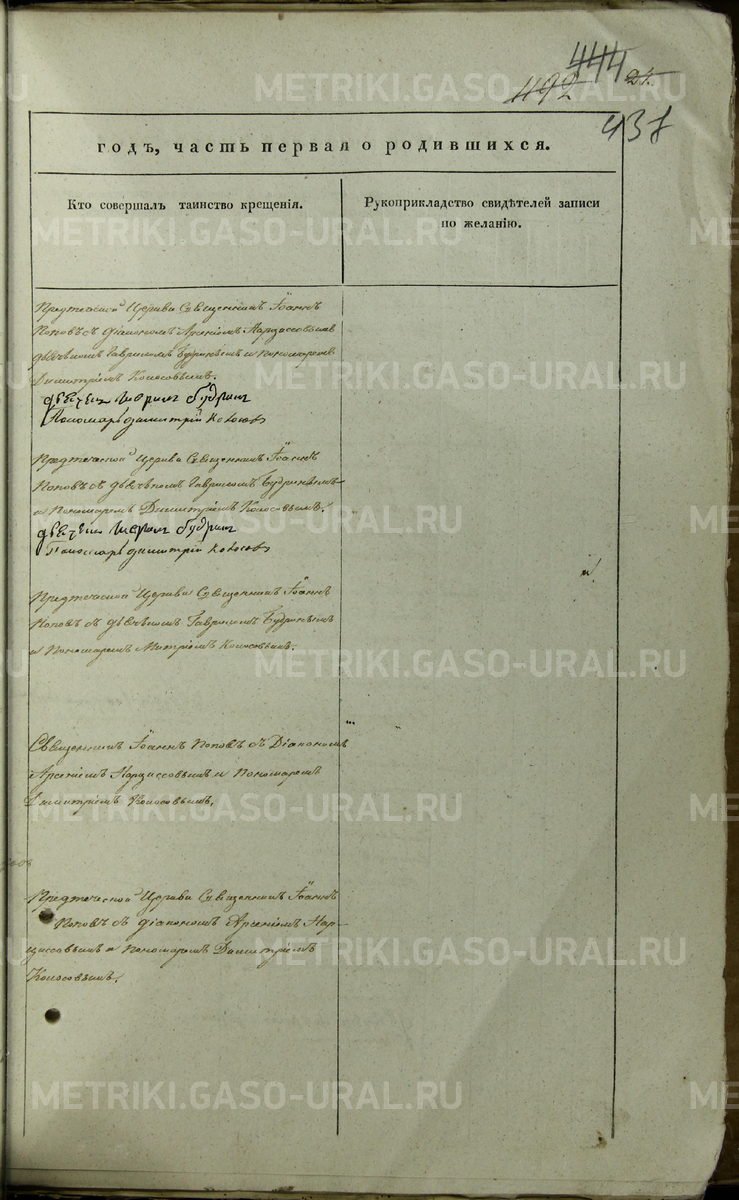 444
492 24.
437
годъ, часть первая о родившихся.
Кто совершалъ таинство крещенія.
Рукоприкладство свидѣтелей записи
по желанію.
Предтеческой Церкви Священникъ Іоаннъ
Поповъ съ діакономъ Арсеніемъ Нарциссовымъ
дьячкомъ Гавріиломъ Будринымъ и пономаремъ
Димитріемъ Колосовымъ.
Пономарь Димитрій Колосовъ
Предтеческой Церкви Священникъ Іоаннъ
Поповъ съ дьячкомъ Гавріиломъ Будринымъ
и Пономаремъ Димитріемъ Колосовымъ.
Пономарь Димитрій Колосовъ
Предтеческой Церкви Священникъ Іоаннъ
Поповъ съ дьячкомъ Гавріиломъ Будринымъ
и Пономаремъ Митріемъ Колосовымъ.
Священникъ Іоаннъ Поповъ съ Діакономъ
Арсеніемъ Нарциссовымъ и Пономаремъ
Димитріемъ Колосовымъ.
Предтеческой Церкви Священникъ Іоаннъ
Поповъ съ діакономъ Арсеніемъ Нар-
циссовымъ и Пономаремъ Димитріемъ
Колосовымъ.
METRIKI.GASO-URAL.RU